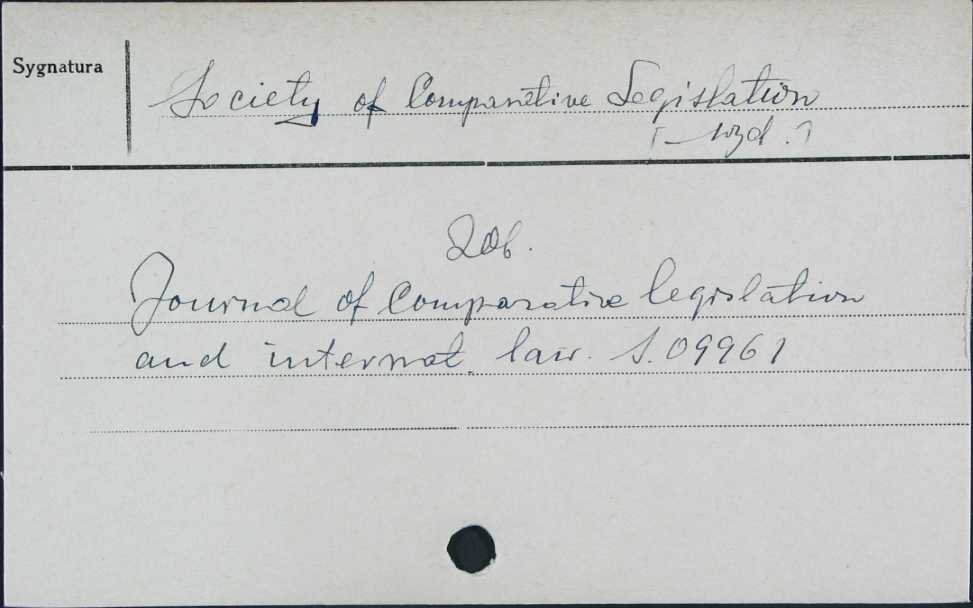 Sygnatura
Society of Comparative Legislation
[-wyd.]
Zob.
Journal of Comparative legislation
and internat. law. S.09961